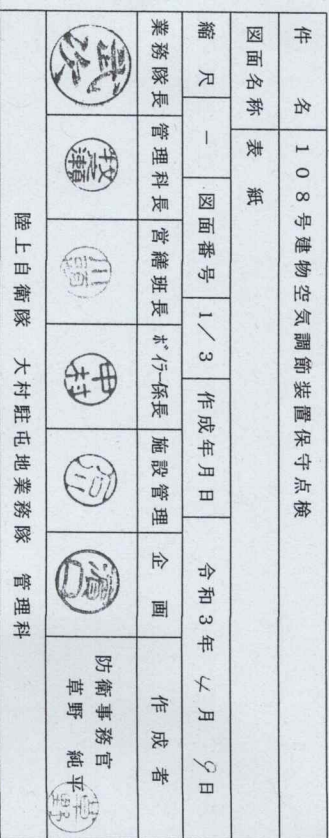 件名 108号建物空気調節装置保守点検
図面名称 表紙
縮尺 － 図面番号 1/3 作成年月日 令和3年4月9日
業務隊長 管理科長 営繕班長 ボイラー係長 施設管理 企画 作成者
武次 中村 濵口 防衛事務官
草野 純平 草野
陸上自衛隊 大村駐屯地業務隊 管理科